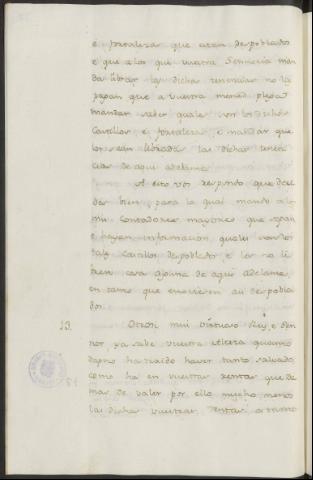 e fortalezas que estan despoblados
e que a los que vuestra Sennoria man
da librar las dichas tenencias no la
pagan que a vuestra merced plega
mandar saber quales son los dichos
Castillos, e fortalezas, e mandar que
los sean libradas las dichas tenen
cias de aqui adelante.
A esto vos respondo que desi
des bien, para lo qual mando a los
mis Contadores mayores que sepan
e hayan informacion, quales son los
tales Castillos despoblados e los no li
bren cosa alguna de aqui adelante,
en tanto que estovieren asi despobla
dos.
23. Otrosi mui virtuoso Rey, e Sen
nor ya sabe vuestra alteza quanto
dapno ha traido haver tanto salvado
como ha en vuestras rentas que de
mas de valer por ello mucho menos
las dichas vuestras rentas, a